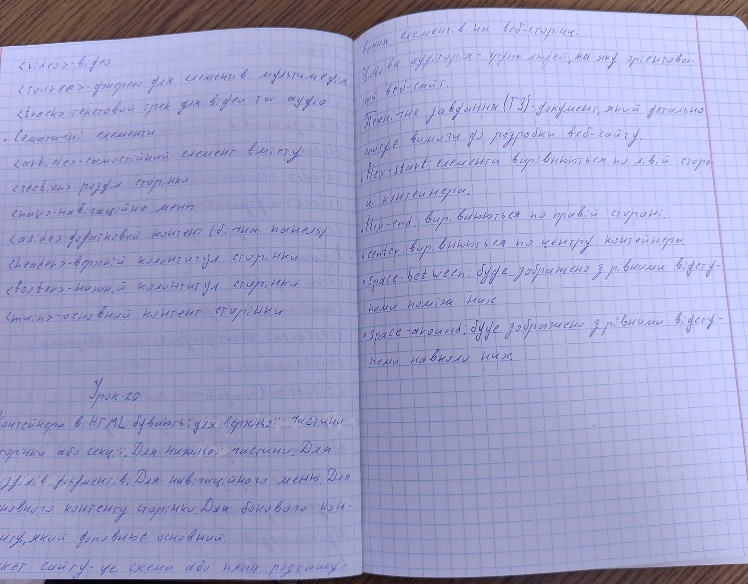 <video>-відео
<source>-джерело для елементів мультимедіа
<track>-текстовий трек для відео та аудіо
• Семантичні елементи
<article>-самостійний елемент вмісту
<section>-розділ сторінки
<nav>-навігаційне меню
<aside>-додатковий контент (бічна панель)
<header>-верхній колонтитул сторінки
<footer>-нижній колонтитул сторінки
<main>-основний контент сторінки
Урок 20
Контейнера в HTML бувають: для верхньої частини
сторінки або секції. Для нижньої частини. Для
розділів документів. Для навігаційного меню. Для
основного контенту сторінки. Для бокового кон-
тенту, який доповнює основний.
Макет сайту-це схема або план розташу-
вання елементів на веб-сторінці.
Цільова аудиторія-група людей, на яку орієнтова-
ний веб-сайт.
Технічне завдання (ТЗ)-документ, який детально
описує вимоги до розробки веб-сайту.
• flex-start: елементи вирівнюються по лівій сторо-
ні контейнера.
• flex-end: вирівнюються по правій стороні.
• center: вирівнюються по центру контейнера
• space-between: буде зображено з рівними відсту-
пами поміж них
• space-around: буде зображено з рівними відсту-
пами навколо них